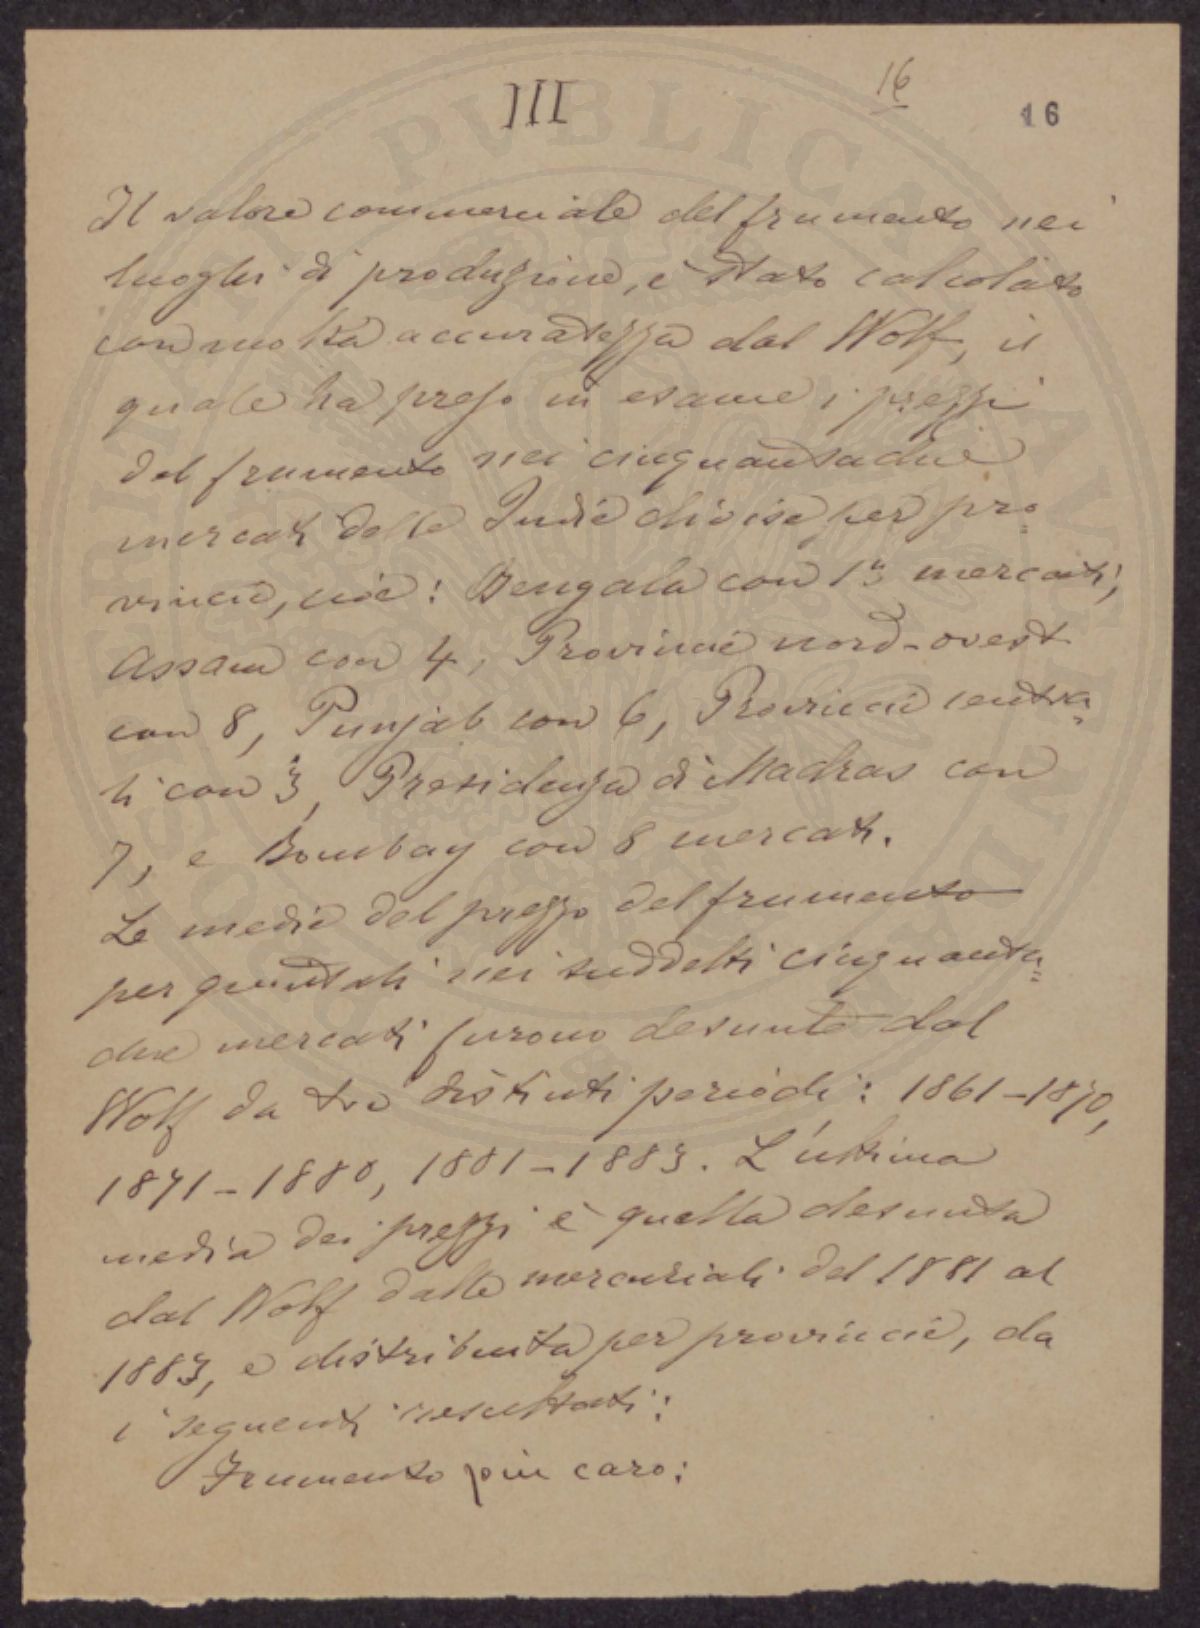 III
16
16
Il valore commerciale del frumento nei
luoghi di produzione, è stato calcolato
con molta accuratezza dal Wolf, il
quale ha preso in esame i prezzi
del frumento nei cinquantadue
mercati delle Indie divise per pro=
vincie, cioè: Bengala con 1 mercati,
Assam con 4, Provincie nord-ovest
con 8, Punjab con 6, Provincie centra=
li con 3, Presidenza di Madras con
7, e Bombay con 8 mercati.
Le medie del prezzo del frumento
per quintali nei suddetti cinquanta=
due mercati furono desunte dal
Wolf da tre distinti periodi: 1861-1870,
1871-1880, 1881-1883. L'ultima
media dei prezzi è quella desunta
dal Wolf dalle mercuriali del 1881 al
1883, e distribuita per provincie, da
i seguenti resultati:
Frumento più caro: